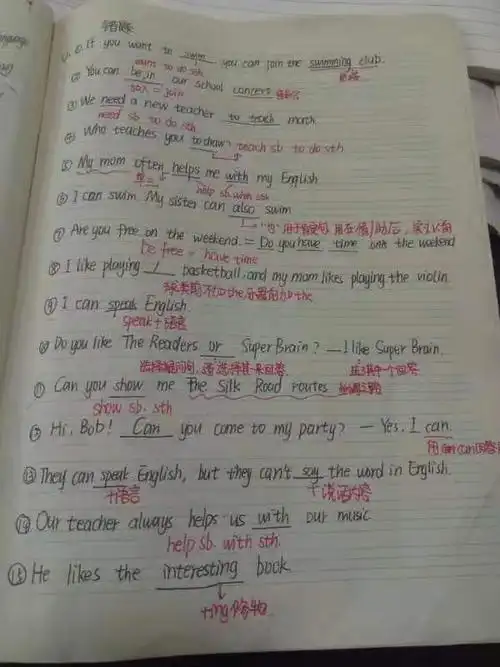 错题
①. If you want to swim, you can join the swimming club.
want to do sth
② You can be in our school concert
加入 = join
③ We need a new teacher to teach math.
need sb to do sth
④ Who teaches you to draw? teach sb to do sth
⑤ My mom often helps me with my English
help sb. with sth
⑥ I can swim. My sister can also swim
⑦ Are you free on the weekend. = Do you have time on the weekend
be free = have time
⑧ I like playing / basketball. and my mom likes playing the violin.
球类前不加the,乐器前加the
⑨ I can speak English.
speak+语言
⑩ Do you like The Readers or Super Brain? — I like Super Brain.
⑪ Can you show me the Silk Road routes 丝绸之路
show sb. sth
⑫ Hi, Bob! Can you come to my party? — Yes. I can.
⑬ They can speak English, but they can't say the word in English.
+语言 +说话内容
⑭ Our teacher always helps us with our music
help sb. with sth.
⑮ He likes the interesting book.
+ing修物